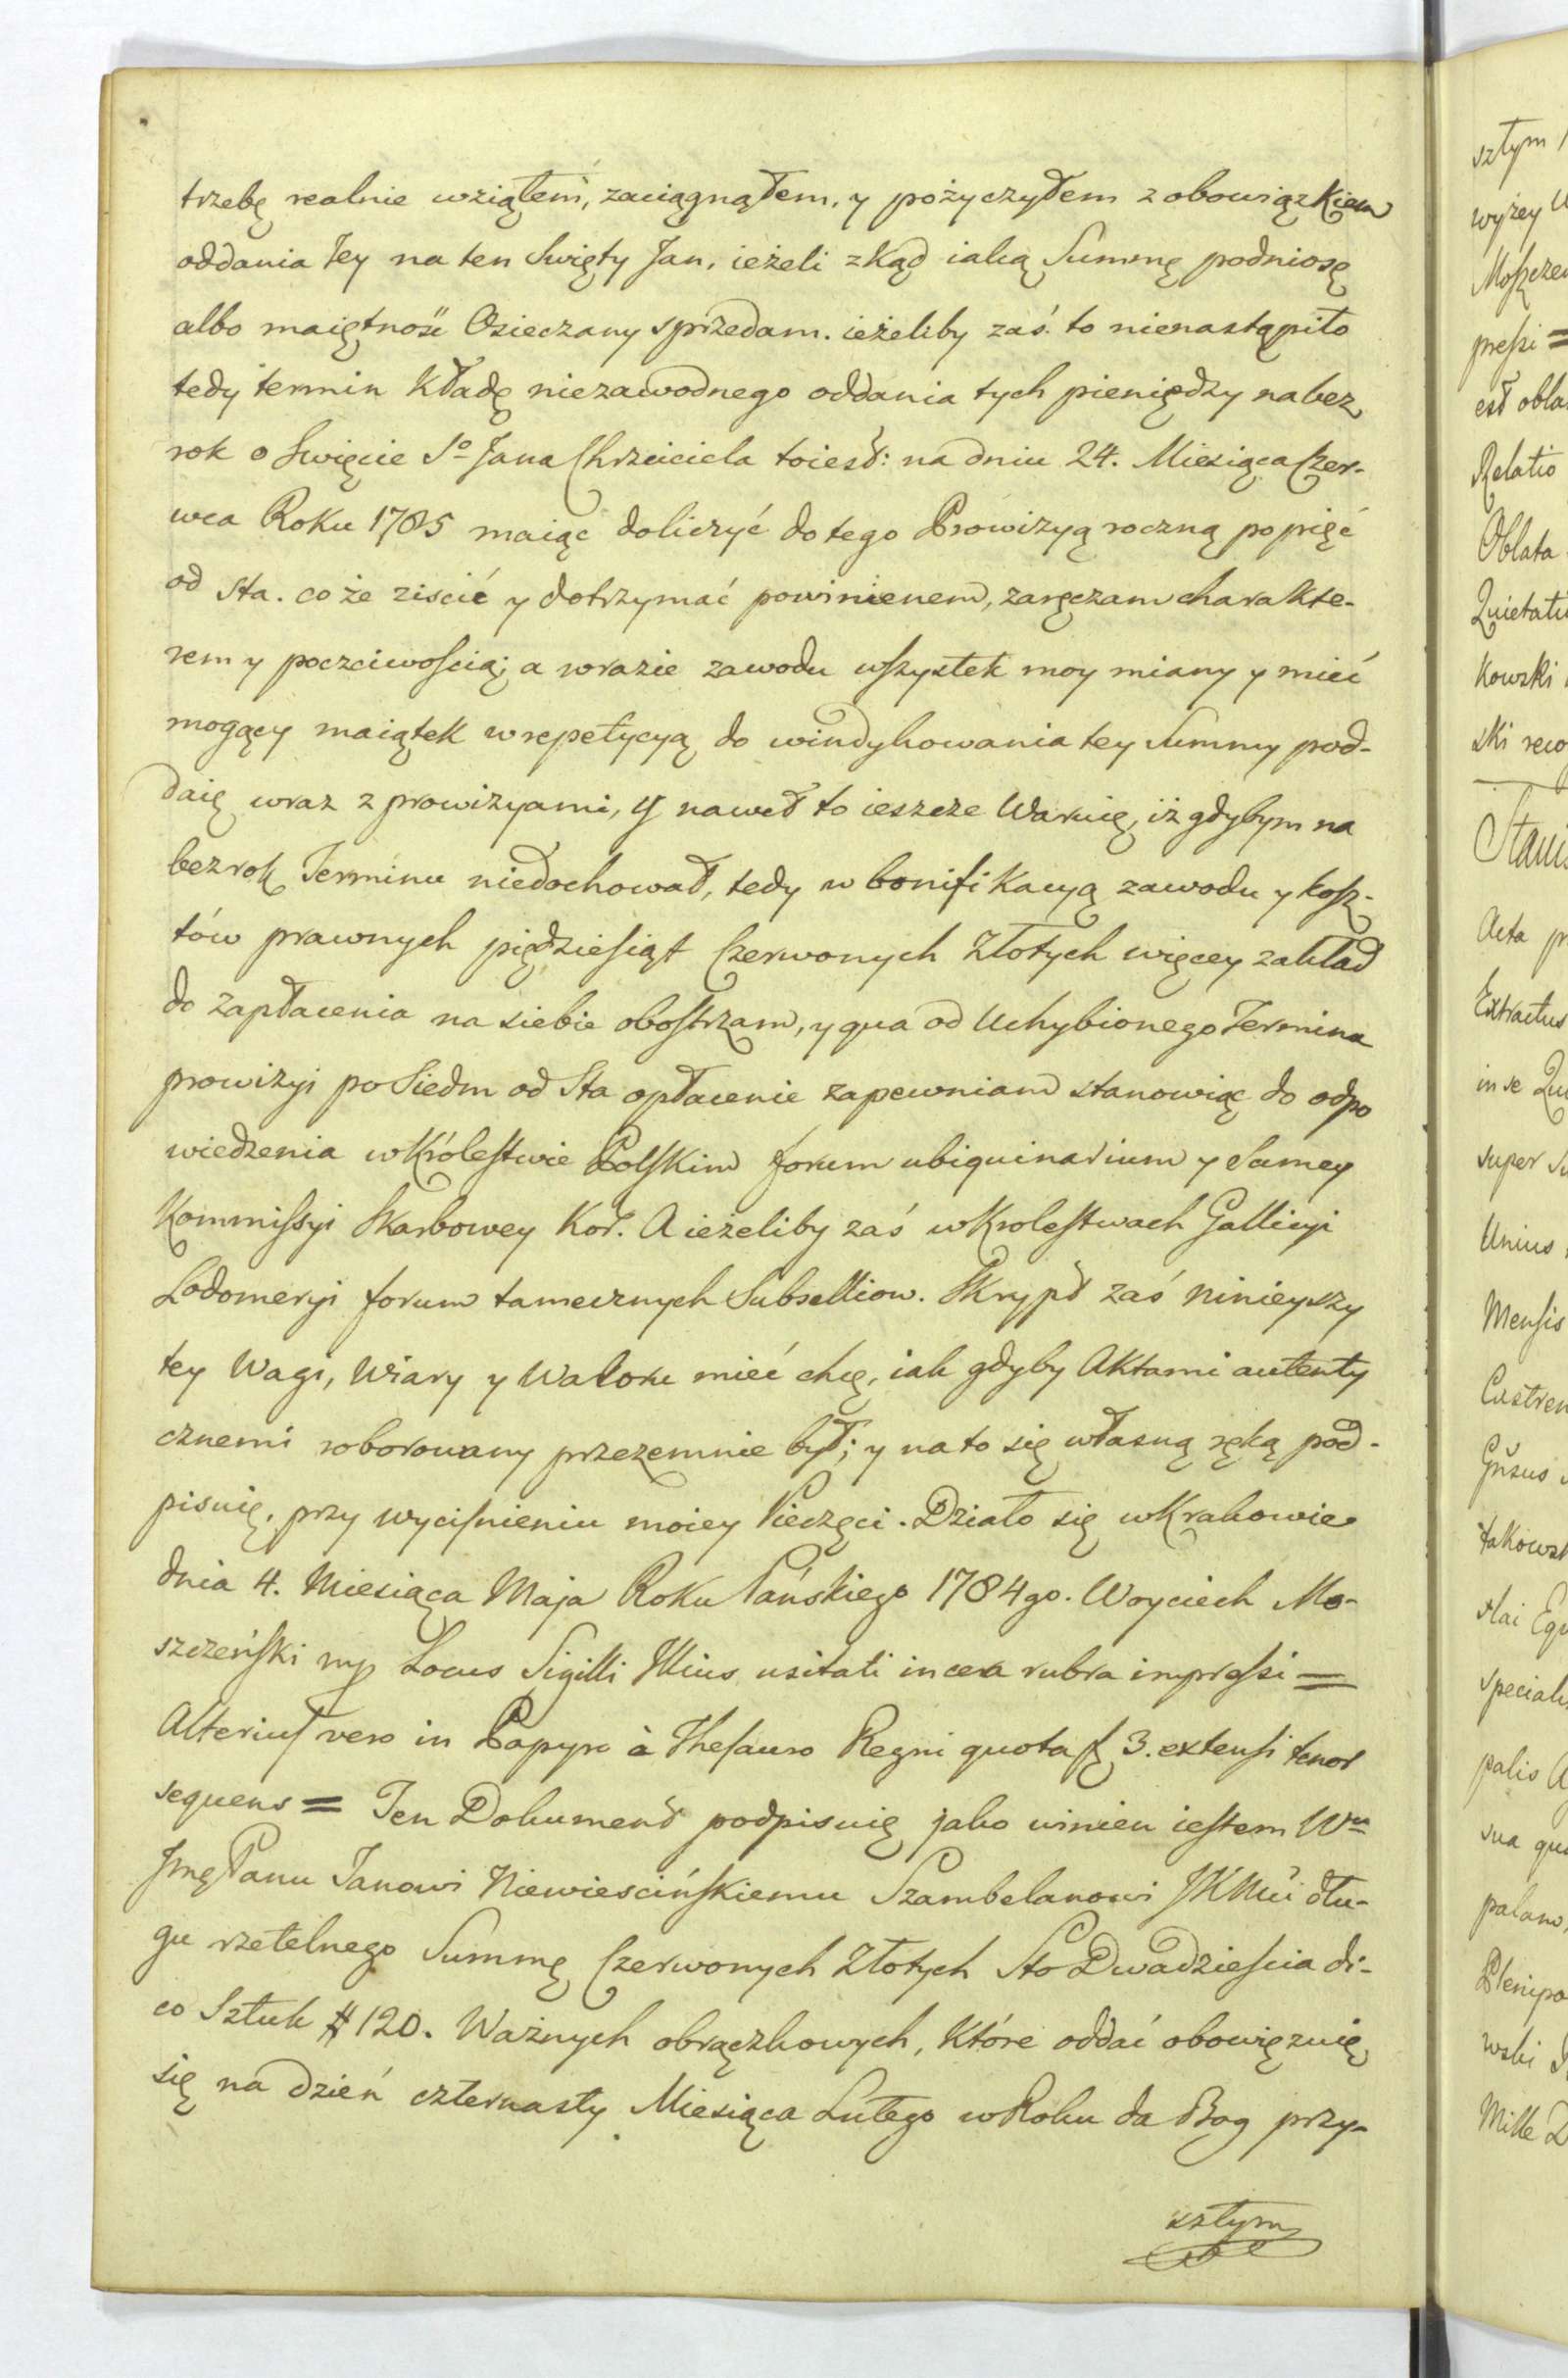 trzebę realnie wziąłem, zaciągnąłem, y pożyczyłem z obowiązkiem
oddania tey na ten Swięty Jan, ieżeli zkąd iaką Summę podniosę
albo maiętność Osieczany sprzedam. ieżeliby zaś to nienastąpiło
tedy termin kładę niezawodnego oddania tych pieniędzy na bez
rok o Swięcie So Jana Chrzciciela toiest: na dniu 24. Miesiąca Czer-
wca Roku 1785 maiąc doliczyć do tego Prowizyą roczną po pięć
od Sta. co że ziscić y dotrzymać powinienem, zaręczam charakte-
rem y poczciwością; a wrazie zawodu wszystek moy miany y mieć
mogący maiątek wrepetycyą do windykowania tey Summy pod-
daię wraz z prowizyami, y nawet to ieszcze Waruię, iż gdybym na
bezrok Terminu niedochował, tedy w bonifikacyą zawodu y kosz-
tów prawnych pięćdziesiąt Czerwonych Złotych więcey zakład
do zapłacenia na siebie obostrzam, y qua od Uchybionego Termina
prowizyi po Siedm od Sta opłacenie zapewniam stanowiąc do odpo
wiedzenia w Królestwie Polskim forum ubiquinarium y Samey
Kommissyi Skarbowey Kor. A ieżeliby zaś w Krolestwach Gallicyi
Lodomeryi forum tamecznych Subselliow. Skrypt zaś ninieyszy
tey Wagi, Wiary y Waloru mieć chcę, iak gdyby Aktami autenty
cznemi roborowany przezemnie był; y na to się własną ręką pod-
pisuię, przy wycisnieniu moiey Pieczęci. Działo się w Krakowie
dnia 4. Miesiąca Maja Roku Pańskiego 1784go. Woyciech Mo-
szczeński mp Locus Sigilli Illius usitati in cera rubra impressi =
Alterius vero in Papyro à Thesauro Regni quota f 3. extensi tenor
sequens = Ten Dokument podpisuię jako winien iestem Wu
Jmę Panu Janowi Niewiescińskiemu Szambelanowi JKMci dłu-
gu rzetelnego Summę Czerwonych Złotych Sto Dwadziescia di-
co Sztuk # 120. Ważnych obrączkowych, które oddać obowięzuię
się na dzień czternasty Miesiąca Lutego w Roku da Bog przy-
sztym
sztym
wyżey
pressi =
est obla
Relatio
Oblata
Quietatio
kowski
ski reco
Stanis
Acta pr
Extractus
in se Qu
super Su
Unius
Mensis
Castren
takowsk
slai Equ
speciali
palis
sua qu
palam,
Plenipo
wski
Mille